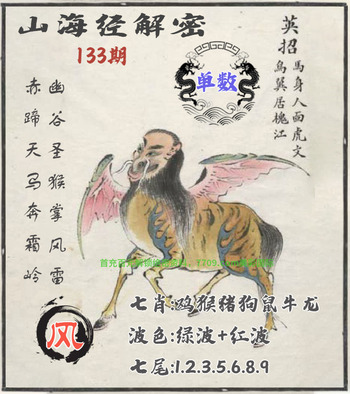 山海经解密
133期
单数
英招
馬身人面虎文
鳥翼居槐江
幽谷圣猴掌风雷
赤蹄天马奔霜岭
风
七肖:鸡猴猪狗鼠牛龙
波色:绿波+红波
七尾:1.2.3.5.6.8.9